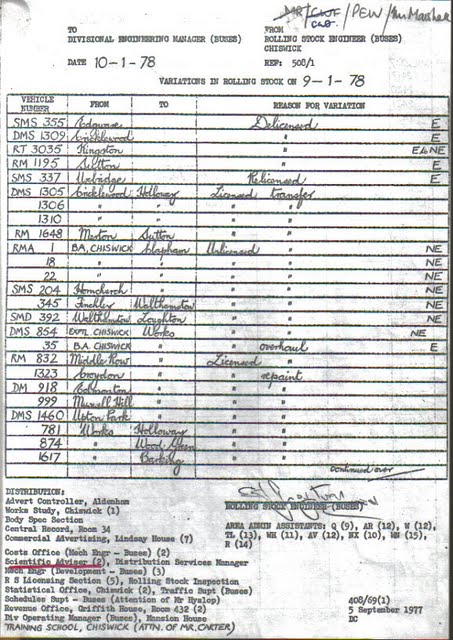 MR / CWF / PEW / Mr Marshall
TO FROM
DIVISIONAL ENGINEERING MANAGER (BUSES) ROLLING STOCK ENGINEER (BUSES)
CHISWICK
DATE 10-1-78 REF: 508/1
VARIATIONS IN ROLLING STOCK ON 9-1-78
VEHICLE NUMBER FROM TO REASON FOR VARIATION
SMS 355 Edgware Delicensed E
DMS 1309 Cricklewood " E
RT 3035 Kingston " E&NE
RM 1195 Sutton " E
SMS 337 Uxbridge Relicensed E
DMS 1305 Cricklewood Holloway Licensed transfer
1306 " " " "
1310 " " " "
RM 1648 Merton Sutton " "
RMA 1 BA, CHISWICK Clapham Unlicensed " NE
18 " " " " NE
22 " " " " NE
SMS 204 Hornchurch " " " NE
345 Finchley Walthamstow " " NE
SMD 392 Walthamstow Loughton " " NE
DMS 854 EXPL CHISWICK Works " " NE
35 B.A. CHISWICK " " overhaul E
RM 832 Middle Row " Licensed "
1323 Croydon " " repaint
DM 918 Edmonton " " "
999 Muswell Hill " " "
DMS 1460 Upton Park " " "
781 Works Holloway " "
874 " Wood Green " "
1617 " Barking " "
continued over
DISTRIBUTION:
Advert Controller, Aldenham
Works Study, Chiswick (1)
Body Spec Section
Central Record, Room 34
Commercial Advertising, Lindsay House (7)
Costs Office (Mech Engr - Buses) (2)
Scientific Adviser (2), Distribution Services Manager
Mech Engr (Development - Buses) (3)
R S Licensing Section (5), Rolling Stock Inspection
Statistical Office, Chiswick (2), Traffic Supt (Buses)
Schedules Supt - Buses (Attention of Mr Hyslop)
Revenue Office, Griffith House, Room 432 (2)
Div Operating Manager (Buses), Mansion House
TRAINING SCHOOL, CHISWICK (ATTN. OF MR. CARTER)
ROLLING STOCK ENGINEER (BUSES)
AREA ADMIN ASSISTANTS: Q (9), AR (12), W (12),
TL (13), WH (11), AV (12), NX (10), MN (15),
R (14)
408/69(1)
5 September 1977
DC